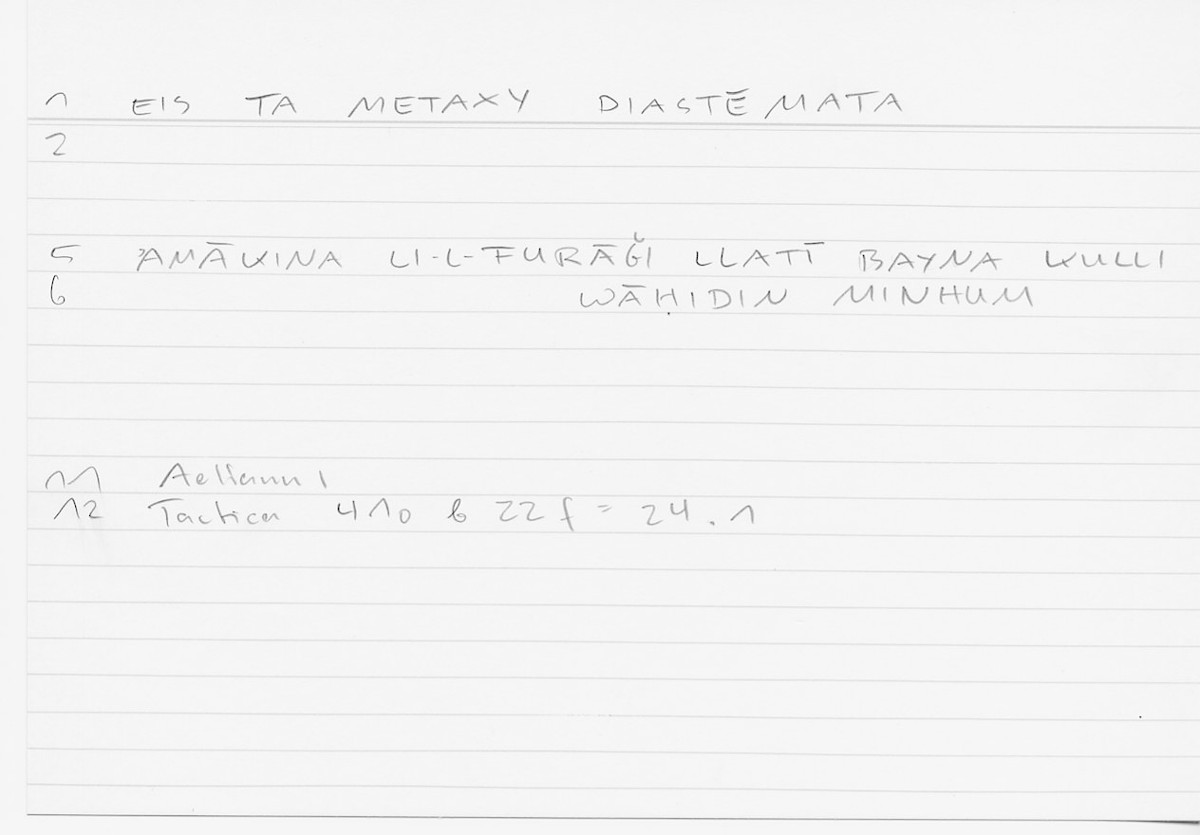 1 EIS TA METAXY DIASTĒMATA
2
5 ʾAMĀKINA LI-L-FURĀǦI LLATĪ BAYNA KULLI
6 WĀḤIDIN MINHUM
11 Aelianus
12 Tactica 410 b 22 f = 24.1